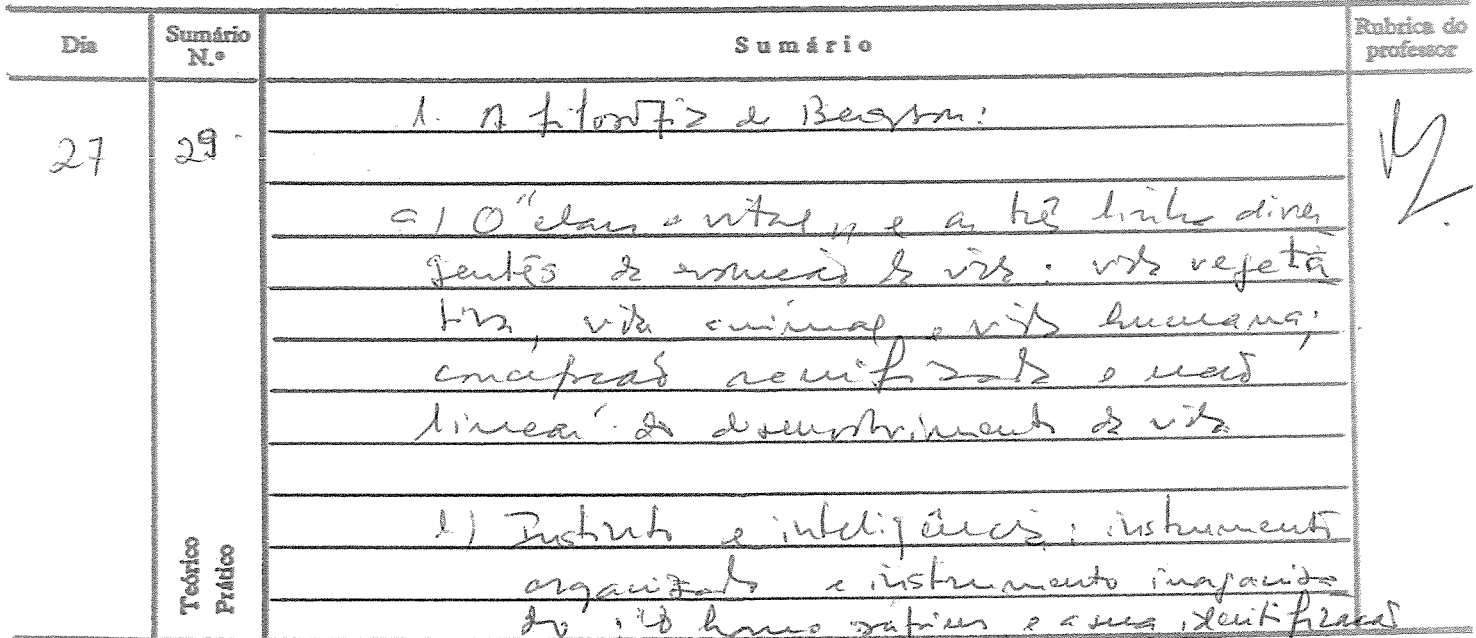 Dia
Sumário N.º
Sumário
Rubrica do professor
27
29
1. A filosofia de Bergson:
a) O "elan" vital" e as três linhas diver
gentes da evolução da vida: vida vegeta
tiva, vida animal e vida humana;
concepção ramificada e não
linear do desenvolvimento da vida
b) Instinto e inteligência: instrumento
organizado e instrumento inorganiza
do; o homo sapiens e a sua identificação
Teórico
Prático